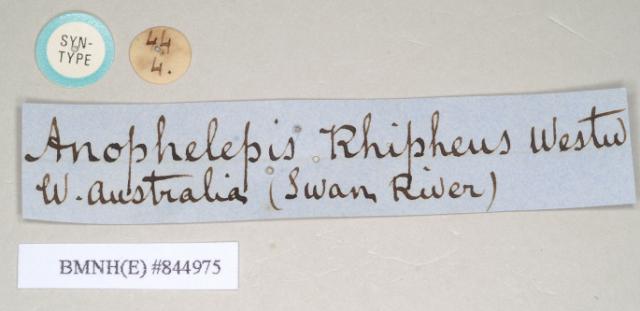 SYN-
TYPE
44
4.
Anophelepis Rhipheus Westw
W. Australia (Swan River)
BMNH(E) #844975